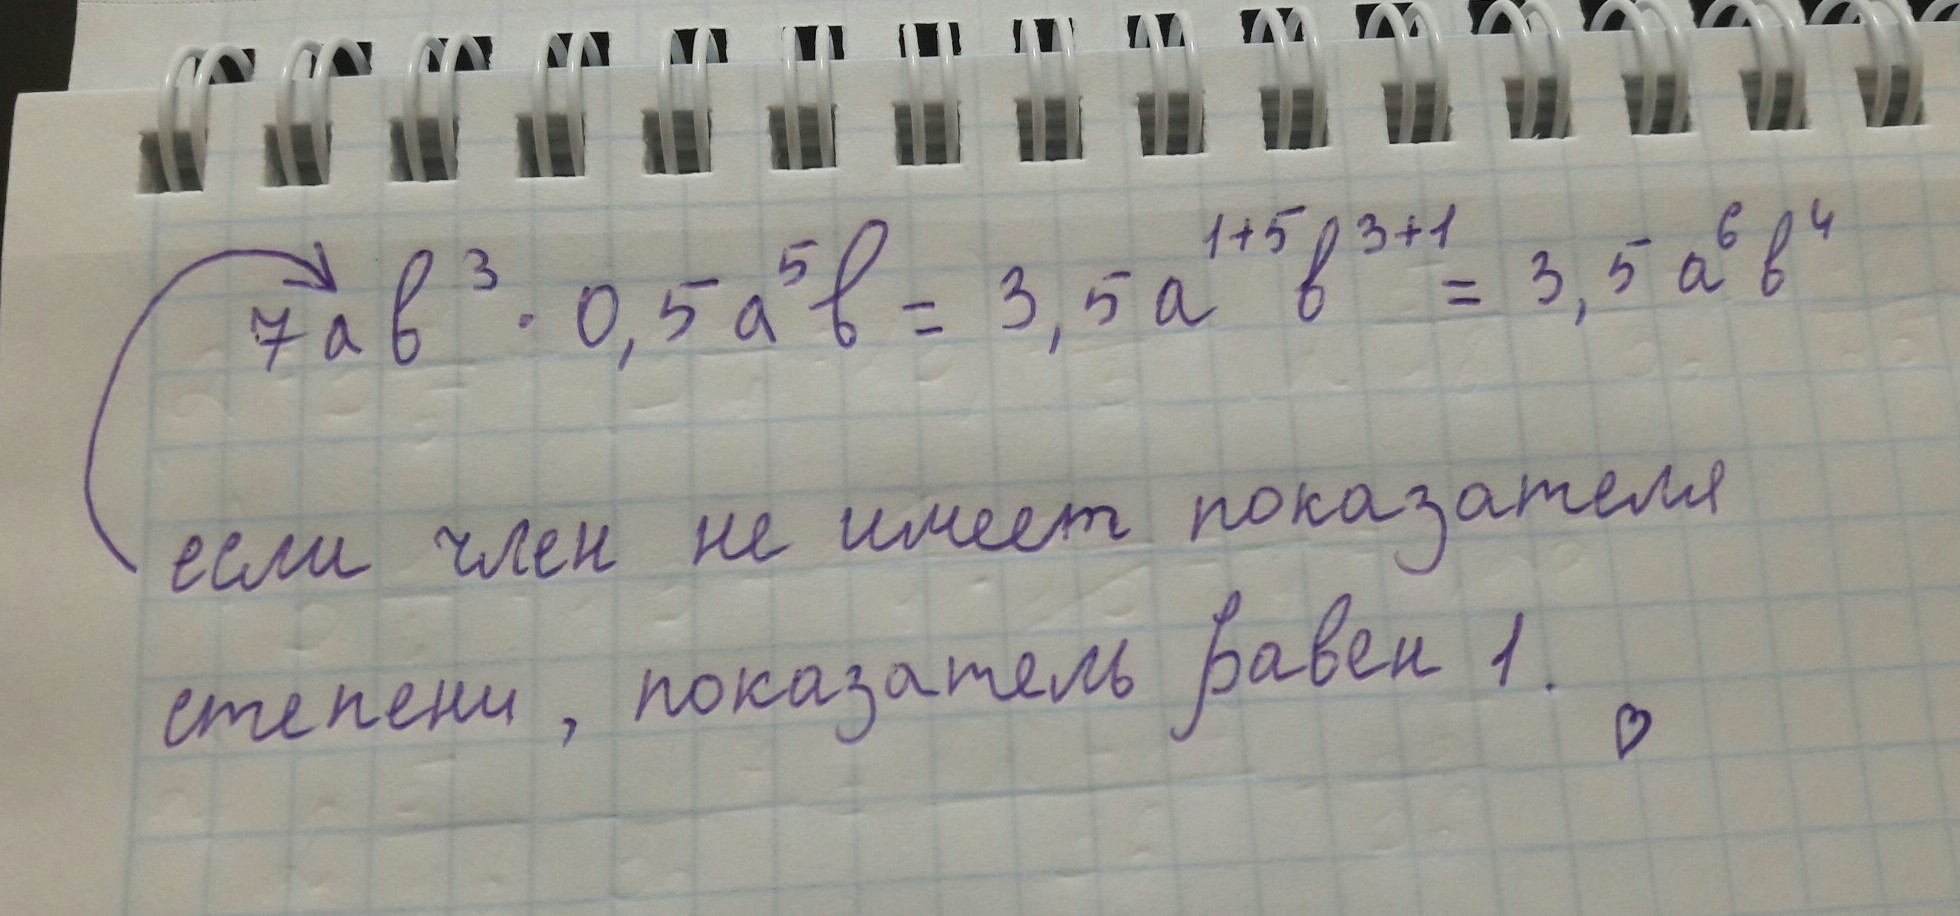 7ab³ · 0,5a⁵b = 3,5a¹⁺⁵b³⁺¹ = 3,5a⁶b⁴
если член не имеет показателя
степени, показатель равен 1.